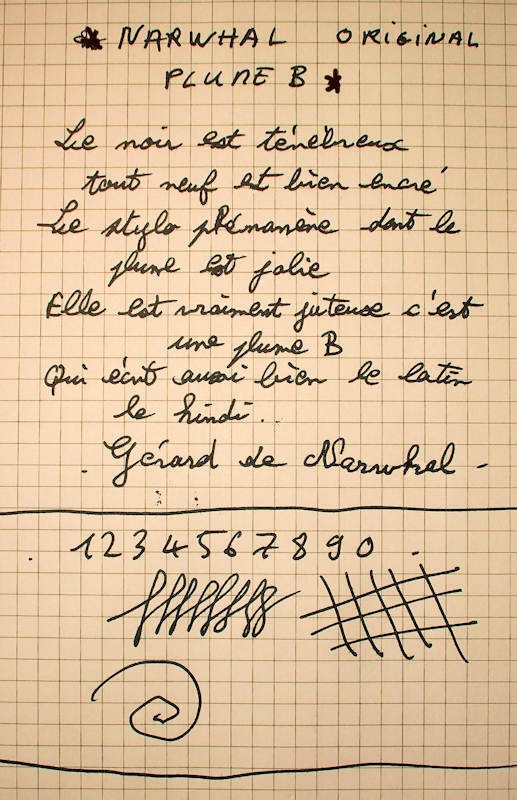 * NARWHAL ORIGINAL
PLUME B *
Le noir est ténébreux
tout neuf et bien encré
Le stylo phénomène dont la
plume est jolie
Elle est vraiment juteuse c'est
une plume B
Qui écrit aussi bien le latin
le hindi..
. Gérard de Narwhal -
. 1 2 3 4 5 6 7 8 9 0 .